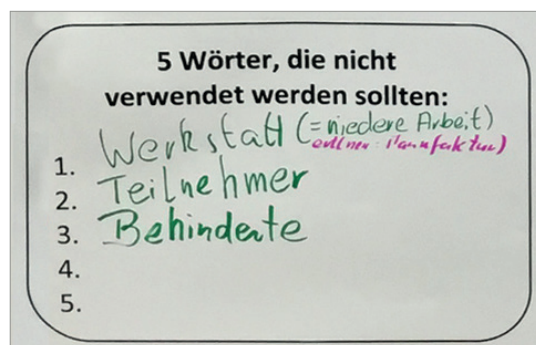 5 Wörter, die nicht
verwendet werden sollten:
1. Werkstatt (= niedere Arbeit)
2. Teilnehmer
3. Behinderte
4.
5.